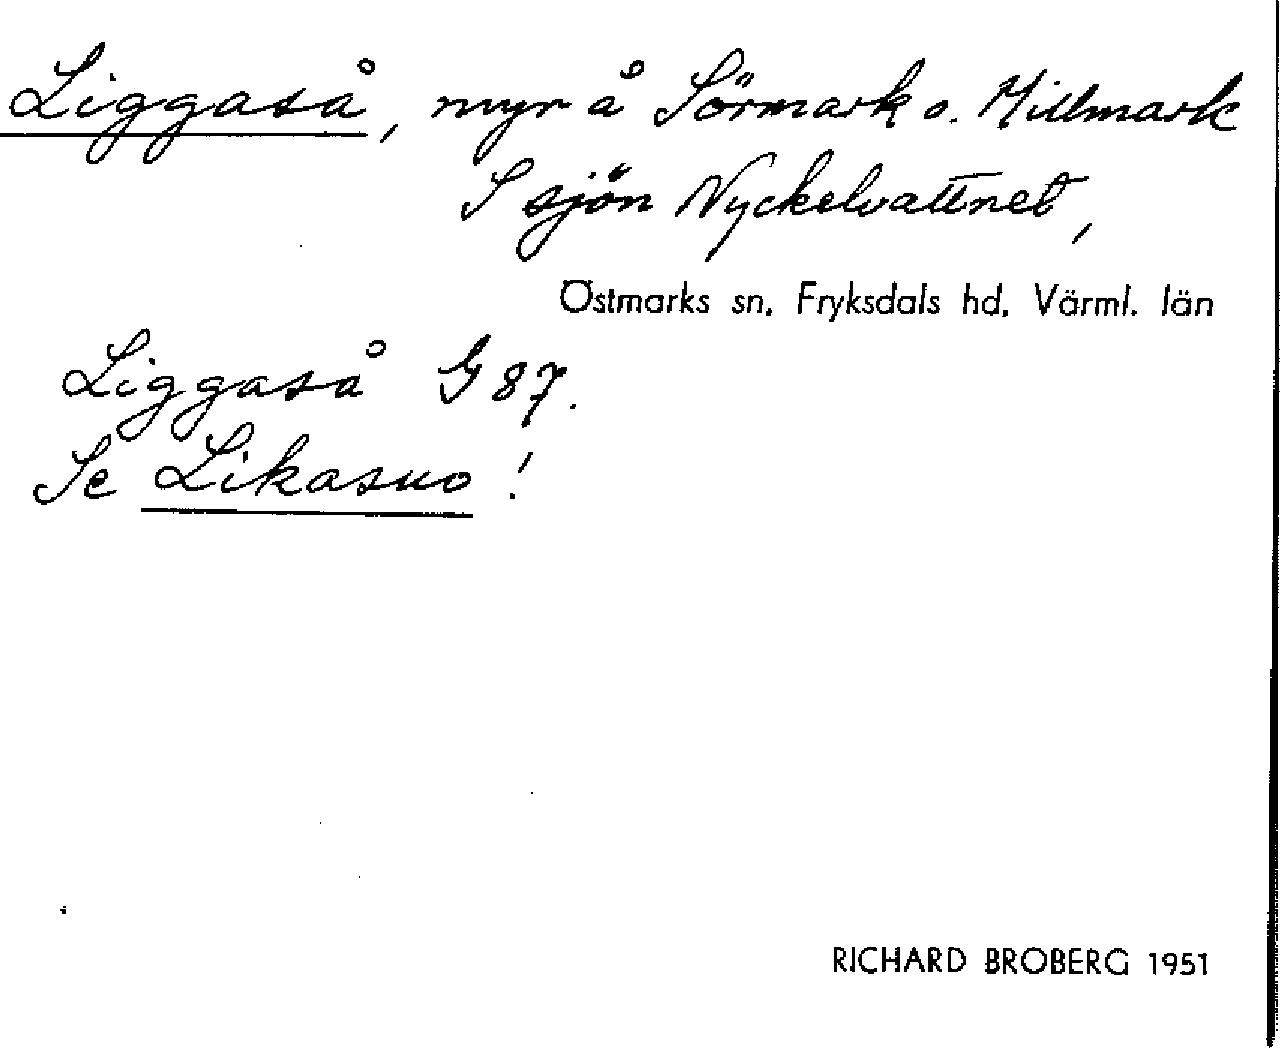 Liggaså, myr å Sörmark o. Millmark
S sjön Nyckelvattnet,
Östmarks sn, Fryksdals hd, Värml. län
Liggaså G 87.
Se Likasuo!
RICHARD BROBERG 1951